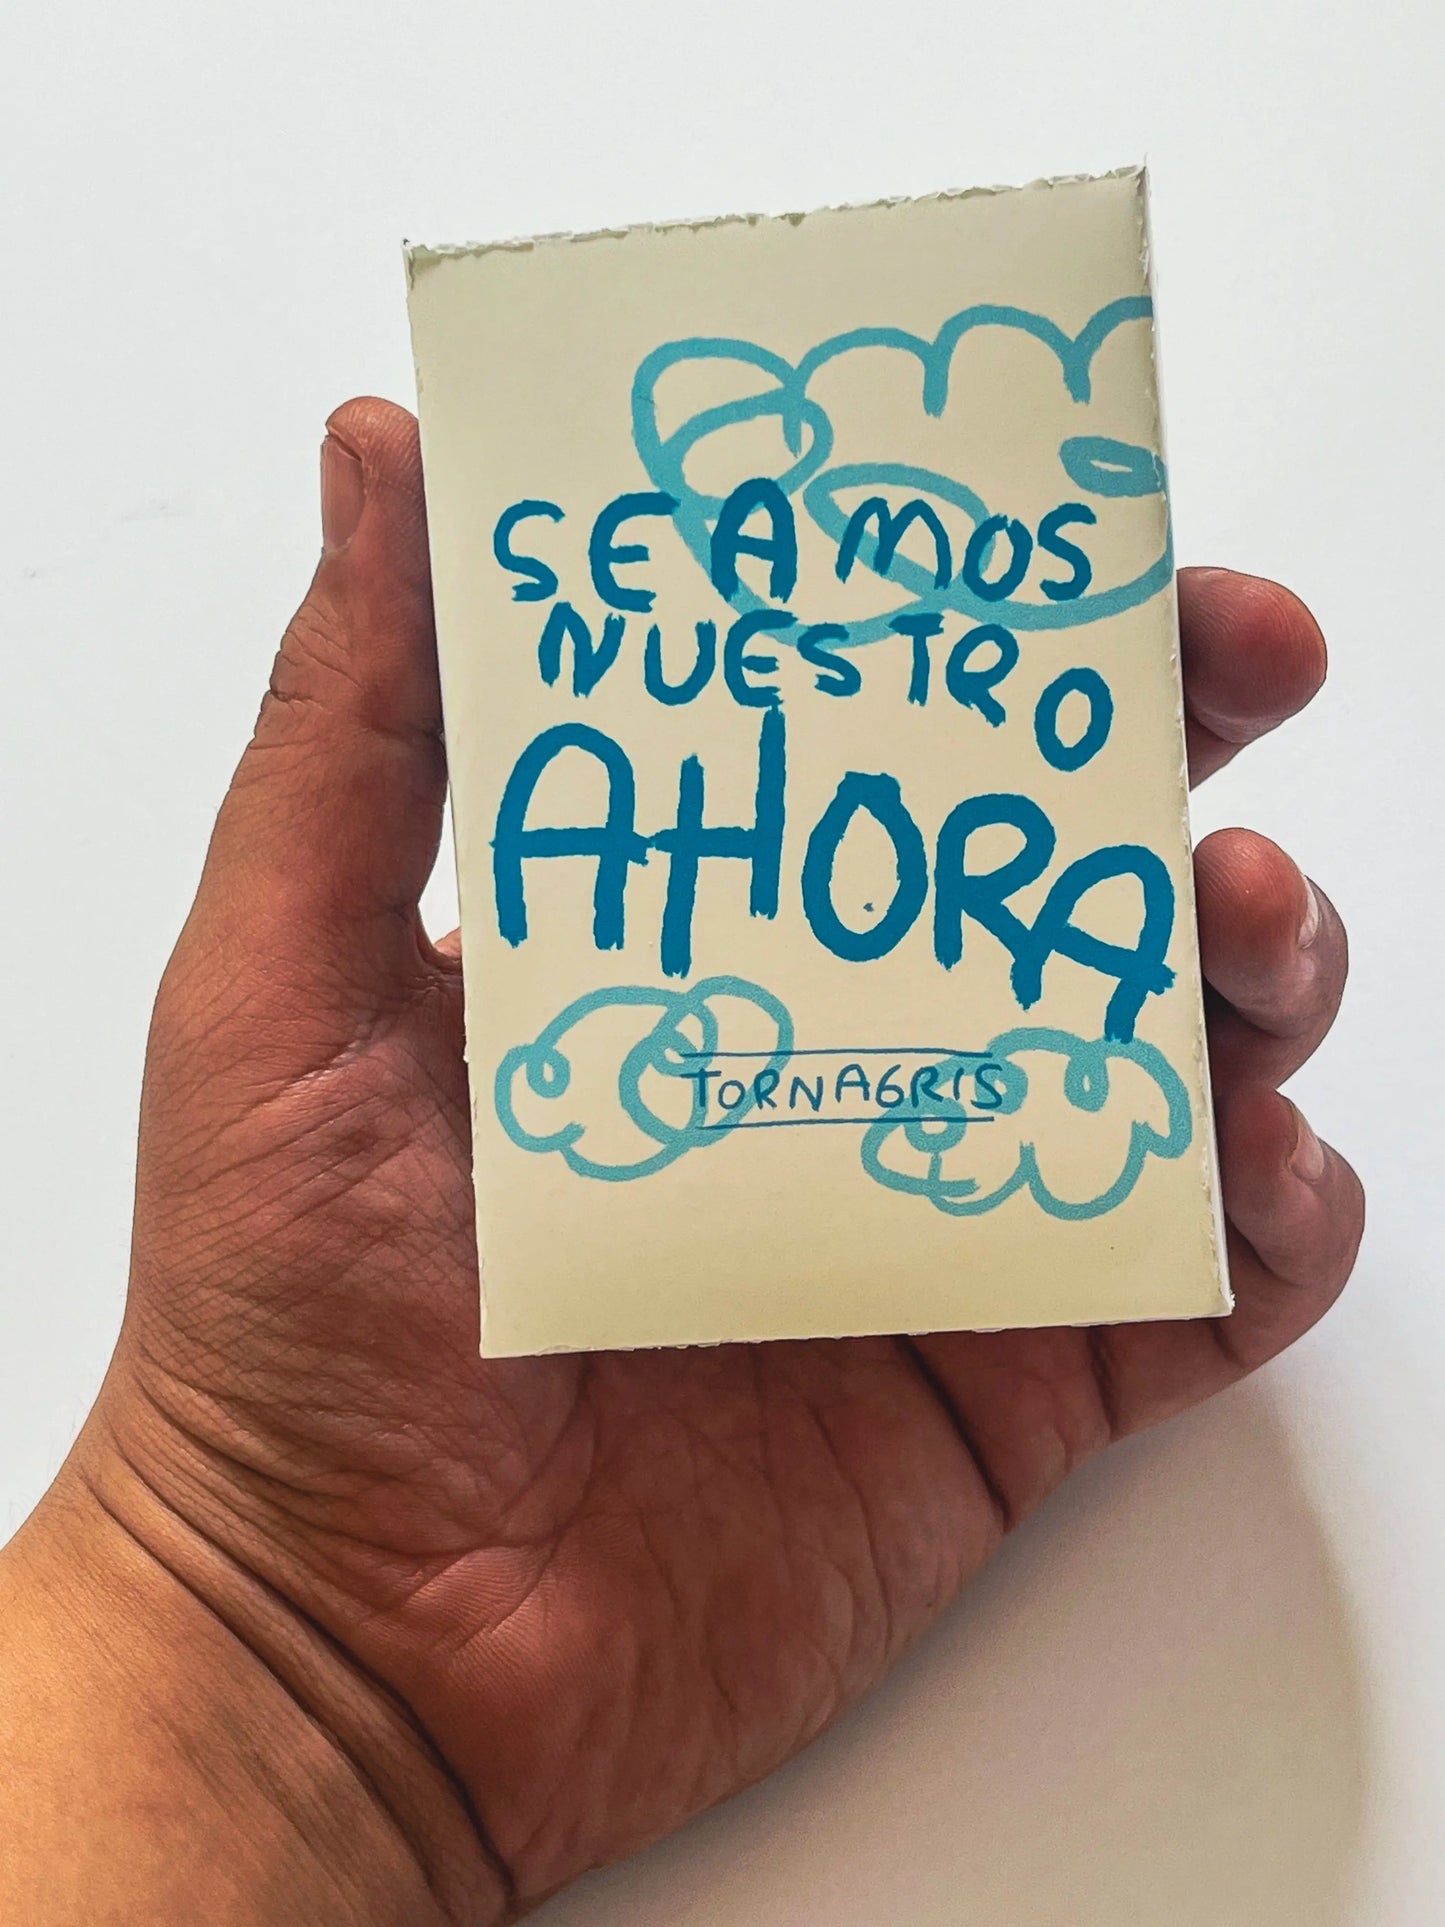 SEAMOS
NUESTRO
AHORA
TORNAGRIS